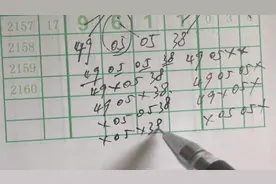 2157 17 9 6 1 1
2158 49 05 05 38
2159 49 05 05 38 49 05 X X
2160 49 X 05 38 05 05 X
49 05 X 38 49 X 05 X
X 05 05 38 X 05 05 X
X 05 X 38